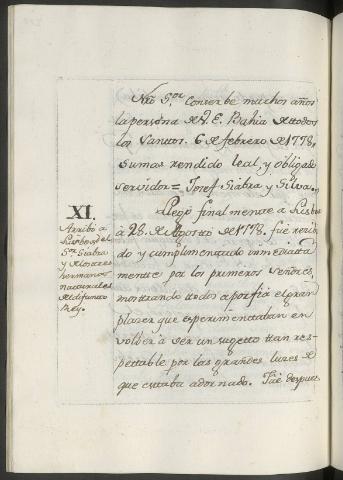 Nrô Sor. Conserbe muchos años
la persona de V. E. Bahia de todos
los Santos. 6 de febrero de 1778,
su mas rendido leal y obligado
servidor = Josef Siabra y Silva.
XI.
Arribò a
Lisboa el
Sor. Siabra
y
hermanos
naturales
del difunto
Rey.
Llegò finalmente a Lisboa
à 28. de Agosto de 1778. fuè recivi
do y cumplimentado inmediata
mente por los primeros señores,
mostrando todos a porfia el gran
placer que esperimentaban en
volber à ver un sugetto tan res-
pettable por las grandes luces de
que estaba adornado. Fuè despues